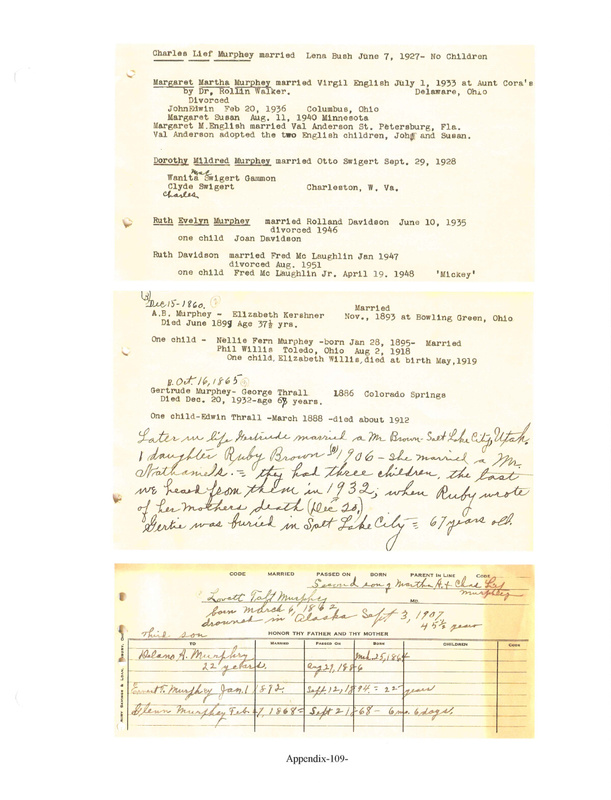 Charles Lief Murphey married Lena Bush June 7, 1927- No Children
Margaret Martha Murphey married Virgil English July 1, 1933 at Aunt Cora's
by Dr, Rollin Walker. Delaware, Ohio
Divorced
JohnEdwin Feb 20, 1936 Columbus, Ohio
Margaret Susan Aug. 11, 1940 Minnesota
Margaret M.English married Val Anderson St. Petersburg, Fla.
Val Anderson adopted the two English children, John and Susan.
Dorothy Mildred Murphey married Otto Swigert Sept. 29, 1928
Wanita Swigert Gammon
Clyde Swigert Charleston, W. Va.
Charles
Ruth Evelyn Murphey married Rolland Davidson June 10, 1935
divorced 1946
one child Joan Davidson
Ruth Davidson married Fred Mc Laughlin Jan 1947
divorced Aug. 1951
one child Fred Mc Laughlin Jr. April 19. 1948 'Mickey'
Dec 15-1860.
A.B. Murphey - Elizabeth Kershner Married
Nov., 1893 at Bowling Green, Ohio
Died June 1898 Age 37½ yrs.
One child - Nellie Fern Murphey -born Jan 28, 1895- Married
Phil Willis Toledo, Ohio Aug 2, 1918
One child, Elizabeth Willis,died at birth May,1919
B. Oct. 16, 1865
Gertrude Murphey- George Thrall 1886 Colorado Springs
Died Dec. 20, 1932-age 67 years.
One child-Edwin Thrall -March 1888 -died about 1912
Later in life Gertrude married a Mr Brown- Salt Lake City, Utah.
1 daughter Ruby Brown (B) 1906 - she married a Mr.
Nathaniels. = they had three children. the last
we heard from them in 1932, when Ruby wrote
of her mothers death (Dec 20.)
Gertie was buried in Salt Lake City = 67 years old.
CODE MARRIED PASSED ON BORN PARENT IN LINE CODE
Second son of Martha A. + Chas Murphey
Lovett Taft Murphey
born March 6, 1862
drowned in Alaska Sept 3, 1907
45½ years
Third son HONOR THY FATHER AND THY MOTHER
TO MARRIED PASSED ON BORN CHILDREN CODE
Delano A. Murphey Mch. 25, 1864
22 years. Aug 29, 1886
Ernest E. Murphey Jan. 1 1872. Sept. 12, 1894 = 22 years
Glenn Murphey Feb. 27, 1868 = Sept 2 1868 - 6 mo. 6 days.
Appendix-109-